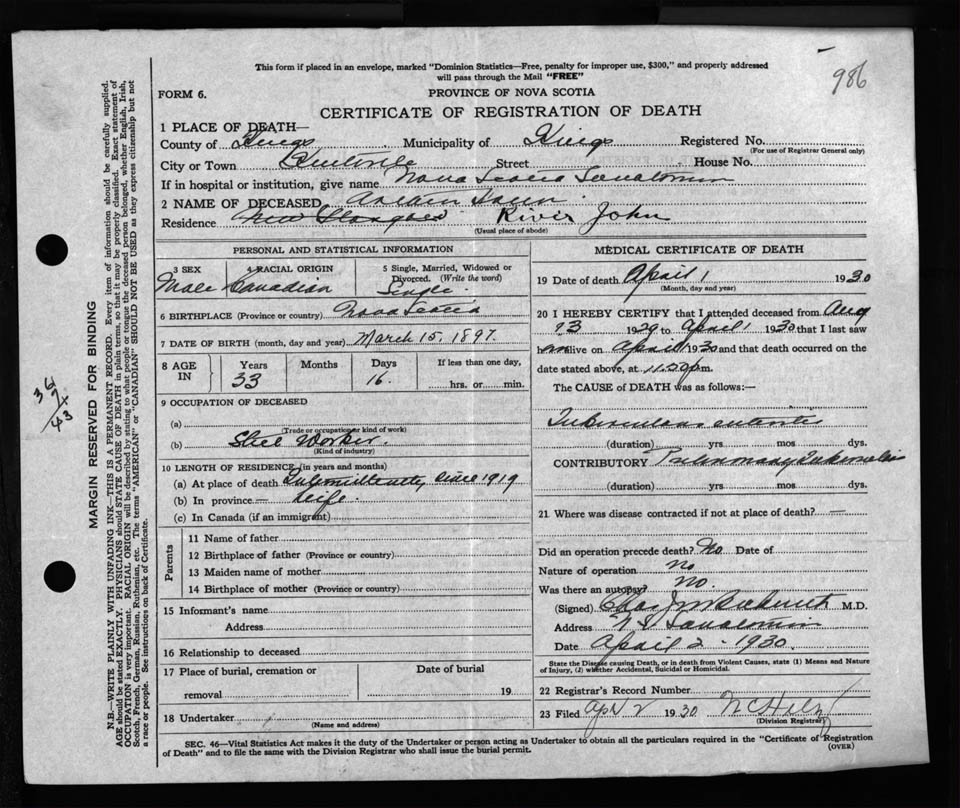 986
This form if placed in an envelope, marked "Dominion Statistics—Free, penalty for improper use, $300," and properly addressed
will pass through the Mail "FREE"
FORM 6.
PROVINCE OF NOVA SCOTIA
CERTIFICATE OF REGISTRATION OF DEATH
1 PLACE OF DEATH—
County of Kings Municipality of Kings Registered No.
(For use of Registrar General only)
City or Town Street House No.
If in hospital or institution, give name Nova Scotia Sanatorium
2 NAME OF DECEASED
Residence New River John
(Usual place of abode)
PERSONAL AND STATISTICAL INFORMATION
3 SEX 4 RACIAL ORIGIN 5 Single, Married, Widowed or Divorced. (Write the word)
Male Canadian Single
6 BIRTHPLACE (Province or country) Nova Scotia
7 DATE OF BIRTH (month, day and year) March 15, 1897.
8 AGE IN Years Months Days If less than one day,
33 16. hrs. or min.
9 OCCUPATION OF DECEASED
(a)
(Trade or occupation or kind of work)
(b) Steel Worker.
(Kind of industry)
10 LENGTH OF RESIDENCE (in years and months)
(a) At place of death Intermittently since 1919
(b) In province— Life.
(c) In Canada (if an immigrant)
Parents
11 Name of father
12 Birthplace of father (Province or country)
13 Maiden name of mother
14 Birthplace of mother (Province or country)
15 Informant's name
Address
16 Relationship to deceased
17 Place of burial, cremation or Date of burial
removal 19
18 Undertaker
(Name and address)
MEDICAL CERTIFICATE OF DEATH
19 Date of death April 1 1930
(Month, day and year)
20 I HEREBY CERTIFY that I attended deceased from Aug
23 1929 to April 1 1930 that I last saw
him alive on April 1 1930 and that death occurred on the
date stated above, at 11.20 p.m.
The CAUSE of DEATH was as follows:—
Tuberculous enteritis
(duration) yrs mos dys.
CONTRIBUTORY Pulmonary Tuberculosis
(duration) yrs. mos. dys.
21 Where was disease contracted if not at place of death? —
Did an operation precede death? No Date of
Nature of operation no
Was there an autopsy? no.
(Signed) M.D.
Address N.S. Sanatorium
Date April 2 - 1930
State the Disease causing Death, or in death from Violent Causes, state (1) Means and Nature
of Injury, (2) whether Accidental, Suicidal or Homicidal.
22 Registrar's Record Number
23 Filed Apr 2 1930
(Division Registrar)
SEC. 46—Vital Statistics Act makes it the duty of the Undertaker or person acting as Undertaker to obtain all the particulars required in the "Certificate of Registration
of Death" and to file the same with the Division Registrar who shall issue the burial permit.
(OVER)
MARGIN RESERVED FOR BINDING
N.B.—WRITE PLAINLY WITH UNFADING INK—THIS IS A PERMANENT RECORD. Every item of information should be carefully supplied.
AGE should be stated EXACTLY. PHYSICIANS should STATE CAUSE OF DEATH in plain terms, so that it may be properly classified. Exact statement of
OCCUPATION is very important. RACIAL ORIGIN will be described by stating to what people or tongue the deceased person belonged, whether English, Irish,
Scotch, French, German, Russian, Ruthenian, etc. The terms "AMERICAN" or "CANADIAN" SHOULD NOT BE USED as they express citizenship but not
a race or people. See instructions on back of Certificate.